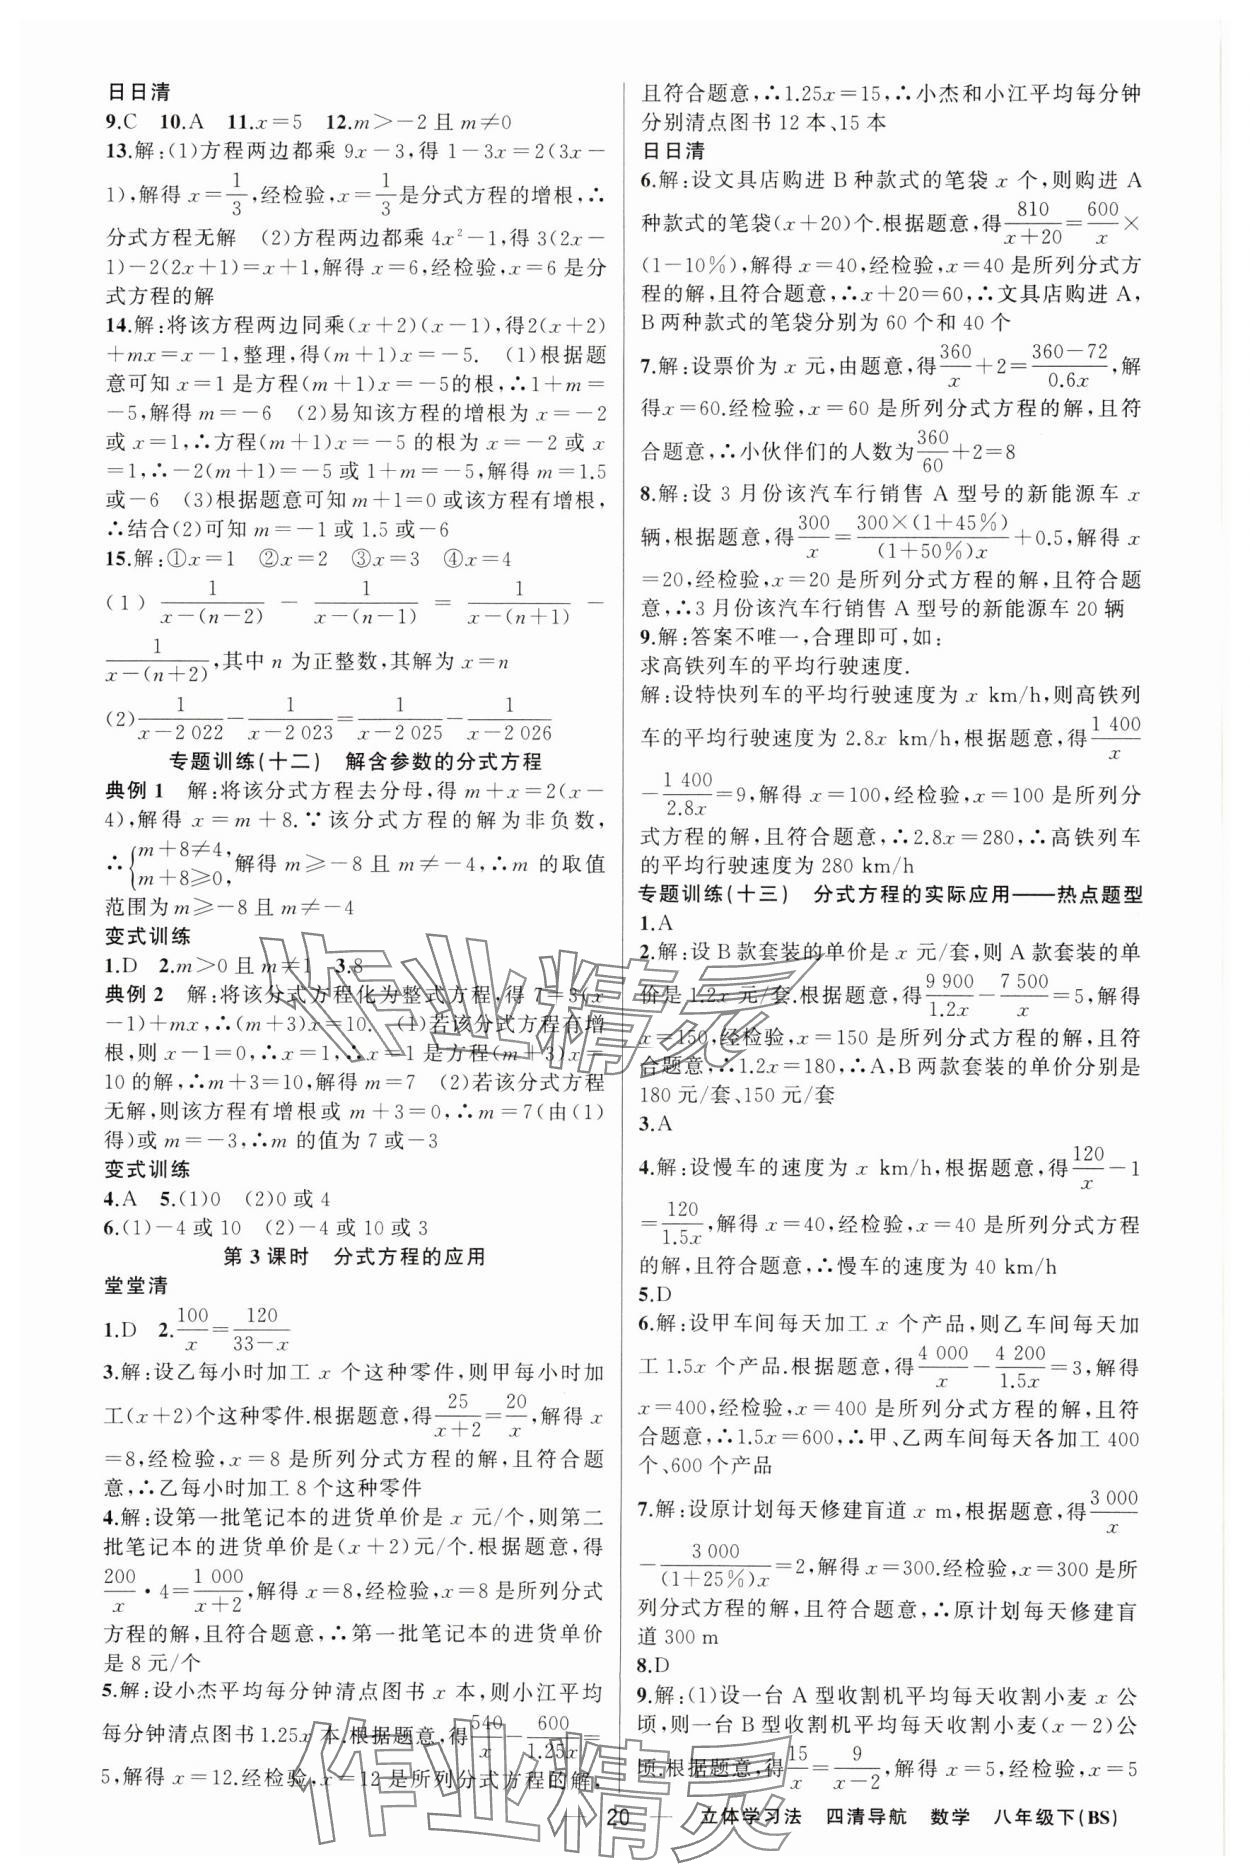 日日清
9.C 10.A 11.x=5 12.m>-2且m≠0
13.解:(1)方程两边都乘9x-3,得1-3x=2(3x-
1),解得x=1/3,经检验,x=1/3是分式方程的增根,∴
分式方程无解 (2)方程两边都乘4x²-1,得3(2x-
1)-2(2x+1)=x+1,解得x=6,经检验,x=6是分
式方程的解
14.解:将该方程两边同乘(x+2)(x-1),得2(x+2)
+mx=x-1,整理,得(m+1)x=-5. (1)根据题
意可知x=1是方程(m+1)x=-5的根,∴1+m=
-5,解得m=-6 (2)易知该方程的增根为x=-2
或x=1,∴方程(m+1)x=-5的根为x=-2或x
=1,∴-2(m+1)=-5或1+m=-5,解得m=1.5
或-6 (3)根据题意可知m+1=0或该方程有增根,
∴结合(2)可知m=-1或1.5或-6
15.解:①x=1 ②x=2 ③x=3 ④x=4
(1) 1/(x-(n-2)) - 1/(x-(n-1)) = 1/(x-(n+1)) -
1/(x-(n+2)),其中n为正整数,其解为x=n
(2) 1/(x-2 022) - 1/(x-2 023) = 1/(x-2 025) - 1/(x-2 026)
专题训练(十二) 解含参数的分式方程
典例1 解:将该分式方程去分母,得m+x=2(x-
4),解得x=m+8.∵该分式方程的解为非负数,
∴{m+8≠4, m+8≥0,解得m≥-8且m≠-4,∴m的取值
范围为m≥-8且m≠-4
变式训练
1.D 2.m>0且m≠1 3.8
典例2 解:将该分式方程化为整式方程,得7=3(x
-1)+mx,∴(m+3)x=10. (1)若该分式方程有增
根,则x-1=0,∴x=1,∴x=1是方程(m+3)x=
10的解,∴m+3=10,解得m=7 (2)若该分式方程
无解,则该方程有增根或m+3=0,∴m=7(由(1)
得)或m=-3,∴m的值为7或-3
变式训练
4.A 5.(1)0 (2)0或4
6.(1)-4或10 (2)-4或10或3
第3课时 分式方程的应用
堂堂清
1.D 2.100/x=120/(33-x)
3.解:设乙每小时加工x个这种零件,则甲每小时加
工(x+2)个这种零件.根据题意,得25/(x+2)=20/x,解得x
=8,经检验,x=8是所列分式方程的解,且符合题
意,∴乙每小时加工8个这种零件
4.解:设第一批笔记本的进货单价是x元/个,则第二
批笔记本的进货单价是(x+2)元/个.根据题意,得
200/x·4=1 000/(x+2),解得x=8,经检验,x=8是所列分式
方程的解,且符合题意,∴第一批笔记本的进货单价
是8元/个
5.解:设小杰平均每分钟清点图书x本,则小江平均
每分钟清点图书1.25x本.根据题意,得540/x-600/1.25x=
5,解得x=12.经检验,x=12是所列分式方程的解,
且符合题意,∴1.25x=15,∴小杰和小江平均每分钟
分别清点图书12本、15本
日日清
6.解:设文具店购进B种款式的笔袋x个,则购进A
种款式的笔袋(x+20)个.根据题意,得810/(x+20)=600/x×
(1-10%),解得x=40,经检验,x=40是所列分式方
程的解,且符合题意,∴x+20=60,∴文具店购进A,
B两种款式的笔袋分别为60个和40个
7.解:设票价为x元,由题意,得360/x+2=(360-72)/0.6x,解
得x=60.经检验,x=60是所列分式方程的解,且符
合题意,∴小伙伴们的人数为360/60+2=8
8.解:设3月份该汽车行销售A型号的新能源车x
辆,根据题意,得300/x=300×(1+45%)/(1+50%)x+0.5,解得x
=20,经检验,x=20是所列分式方程的解,且符合题
意,∴3月份该汽车行销售A型号的新能源车20辆
9.解:答案不唯一,合理即可,如:
求高铁列车的平均行驶速度.
解:设特快列车的平均行驶速度为x km/h,则高铁列
车的平均行驶速度为2.8x km/h,根据题意,得1 400/x
-1 400/2.8x=9,解得x=100,经检验,x=100是所列分
式方程的解,且符合题意,∴2.8x=280,∴高铁列车
的平均行驶速度为280 km/h
专题训练(十三) 分式方程的实际应用——热点题型
1.A
2.解:设B款套装的单价是x元/套,则A款套装的单
价是1.2x元/套.根据题意,得9 900/1.2x-7 500/x=5,解得
x=150,经检验,x=150是所列分式方程的解,且符
合题意,∴1.2x=180,∴A,B两款套装的单价分别是
180元/套、150元/套
3.A
4.解:设慢车的速度为x km/h,根据题意,得120/x-1
=120/1.5x,解得x=40,经检验,x=40是所列分式方程
的解,且符合题意,∴慢车的速度为40 km/h
5.D
6.解:设甲车间每天加工x个产品,则乙车间每天加
工1.5x个产品.根据题意,得4 000/x-4 200/1.5x=3,解得
x=400,经检验,x=400是所列分式方程的解,且符
合题意,∴1.5x=600,∴甲、乙两车间每天各加工400
个、600个产品
7.解:设原计划每天修建盲道x m,根据题意,得3 000/x
-3 000/(1+25%)x=2,解得x=300.经检验,x=300是所
列分式方程的解,且符合题意,∴原计划每天修建盲
道300 m
8.D
9.解:(1)设一台A型收割机平均每天收割小麦x公
顷,则一台B型收割机平均每天收割小麦(x-2)公
顷.根据题意,得15/x=9/(x-2),解得x=5,经检验,x=5
20 立体学习法 四清导航 数学 八年级下(BS)
作业精灵
作业精灵